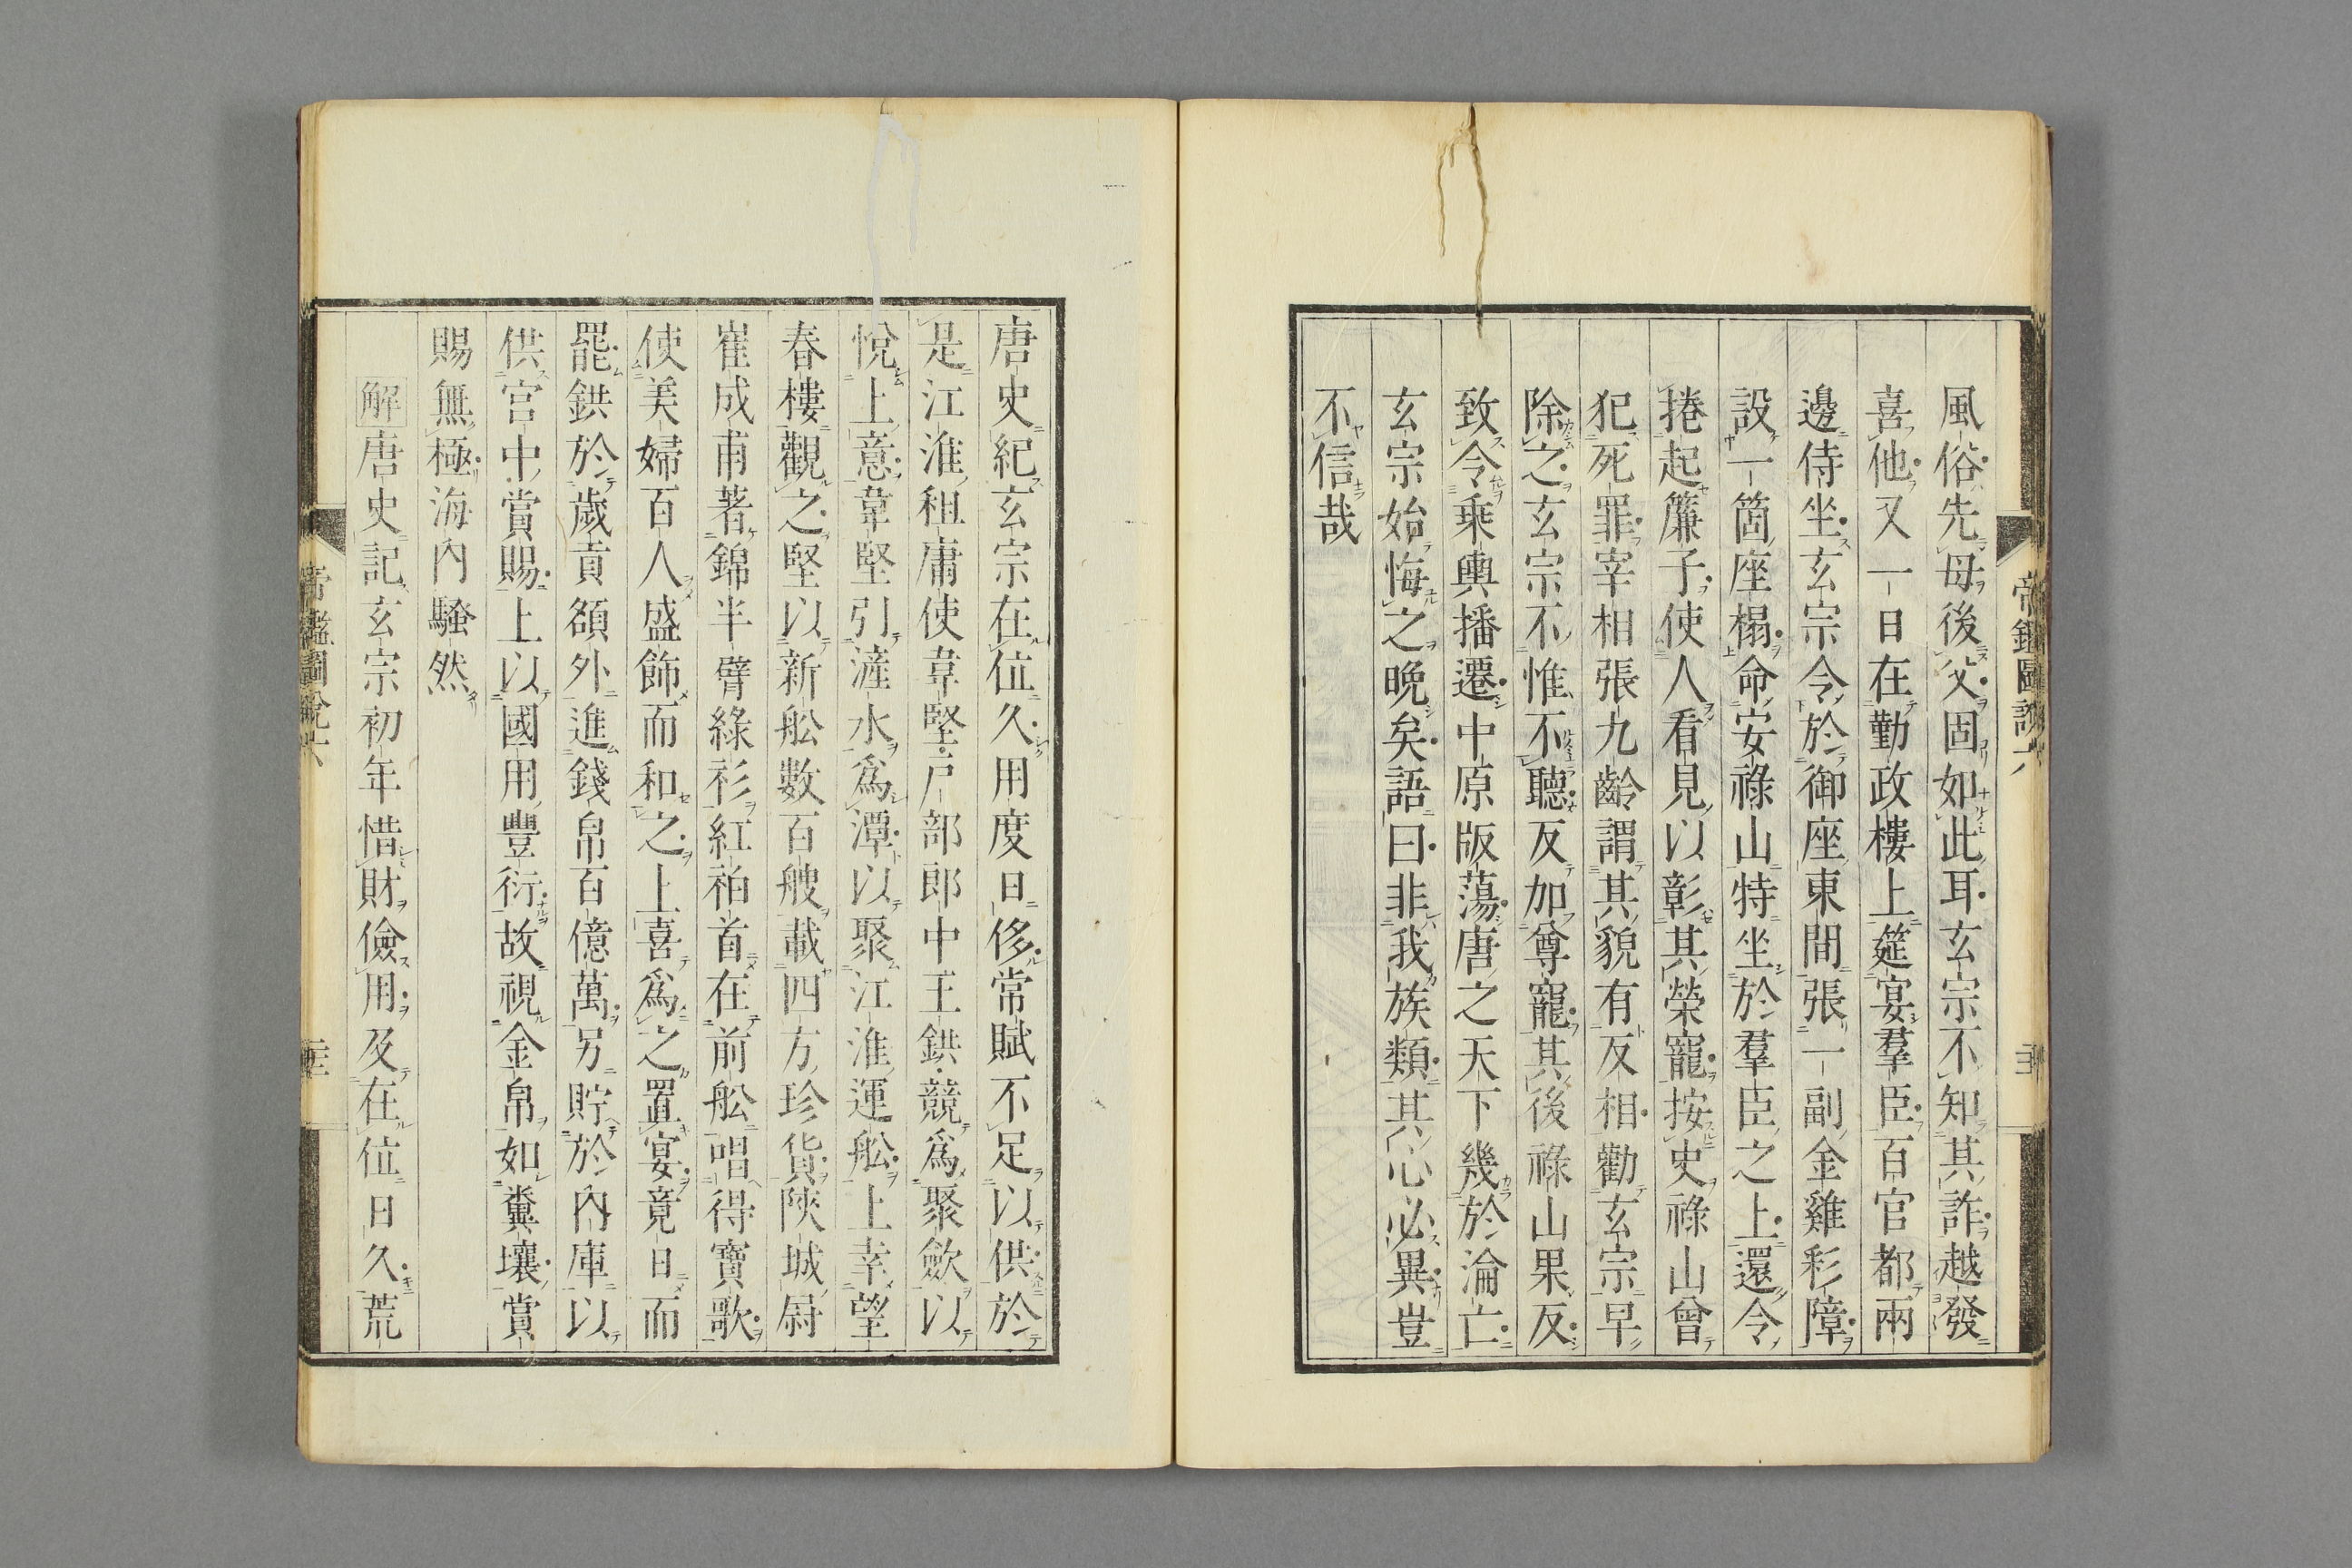 風俗先母後父固如此耳玄宗不知其詐越發
喜他又一日在勤政樓上筵宴羣臣百官都兩
邊侍坐玄宗令於御座東間張一副金雞彩障
設一箇座榻命安祿山特坐於羣臣之上還令
捲起簾子使人看見以彰其榮寵按史祿山曾
犯死罪宰相張九齡謂其貌有反相勸玄宗早
除之玄宗不惟不聽反加尊寵其後祿山果反
致令乘輿播遷中原版蕩唐之天下幾於淪亡
玄宗始悔之晚矣語曰非我族類其心必異豈
不信哉
唐史紀玄宗在位久用度日侈常賦不足以供於
是江淮租庸使韋堅戶部郎中王鉷競爲聚斂以
悅上意韋堅引滻水爲潭以聚江淮運舩上幸望
春樓觀之堅以新舩數百艘載四方珍貨陝城尉
崔成甫著錦半臂綠衫紅袹首在前舩唱得寶歌
使美婦百人盛飾而和之上喜爲之置宴竟日而
罷鉷於歲貢額外進錢帛百億萬另貯於內庫以
供宮中賞賜上以國用豐衍故視金帛如糞壤賞
賜無極海內騷然
解唐史記玄宗初年惜財儉用及在位日久荒
帝鑑圖說六